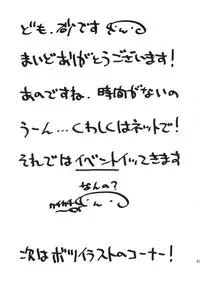 ども。砂です
まいどありがとうございます!
あのですね、時間がないの
うーん...くわしくはネットで!
それではイベントイッてきます
なんの?
次はボツイラストのコーナー!